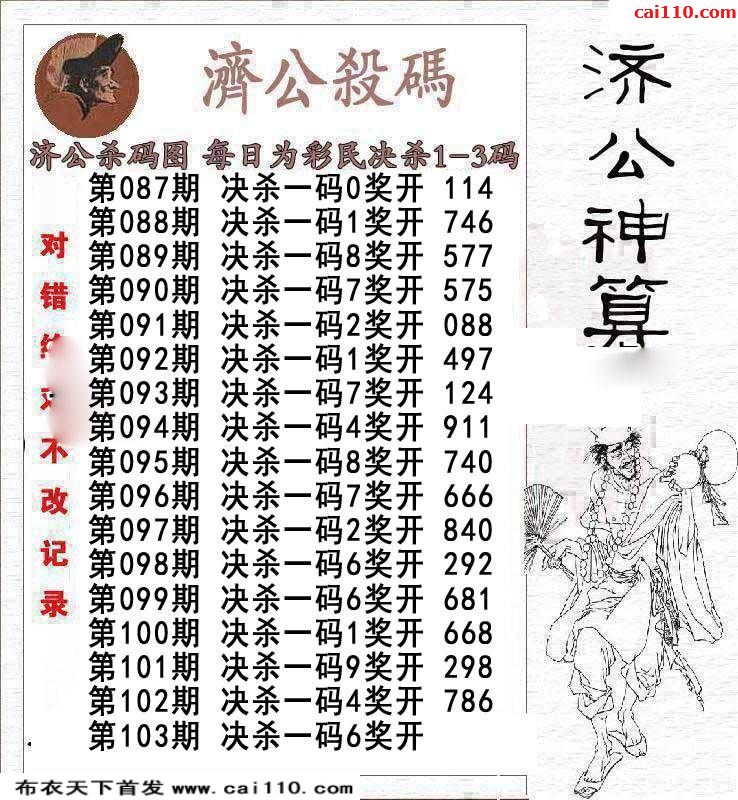 cai110.com
濟公殺碼
济公杀码图 每日为彩民决杀1-3码
第087期 决杀一码0奖开 114
第088期 决杀一码1奖开 746
第089期 决杀一码8奖开 577
第090期 决杀一码7奖开 575
第091期 决杀一码2奖开 088
第092期 决杀一码1奖开 497
第093期 决杀一码7奖开 124
第094期 决杀一码4奖开 911
第095期 决杀一码8奖开 740
第096期 决杀一码7奖开 666
第097期 决杀一码2奖开 840
第098期 决杀一码6奖开 292
第099期 决杀一码6奖开 681
第100期 决杀一码1奖开 668
第101期 决杀一码9奖开 298
第102期 决杀一码4奖开 786
第103期 决杀一码6奖开
对错不改记录
济公神算
布衣天下首发 www.cai110.com